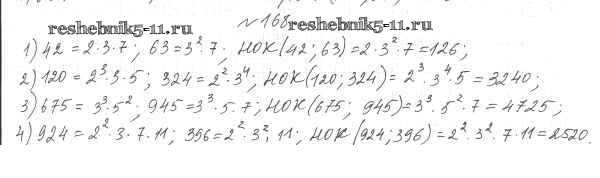 №168
reshebnik5-11.ru reshebnik5-11.ru
1) 42 = 2·3·7; 63 = 3²·7; НОК(42; 63) = 2·3²·7 = 126;
2) 120 = 2³·3·5; 324 = 2²·3⁴; НОК(120; 324) = 2³·3⁴·5 = 3240;
3) 675 = 3³·5²; 945 = 3³·5·7; НОК(675; 945) = 3³·5²·7 = 4725;
4) 924 = 2²·3·7·11; 396 = 2²·3²·11; НОК(924; 396) = 2²·3²·7·11 = 2520.